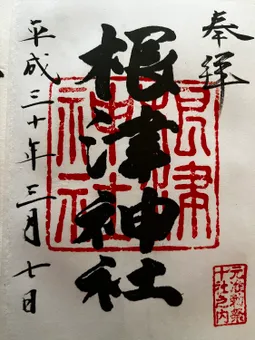 奉拝
根津神社
平成三十年三月七日
根津
神社
元准勅祭
十社之内